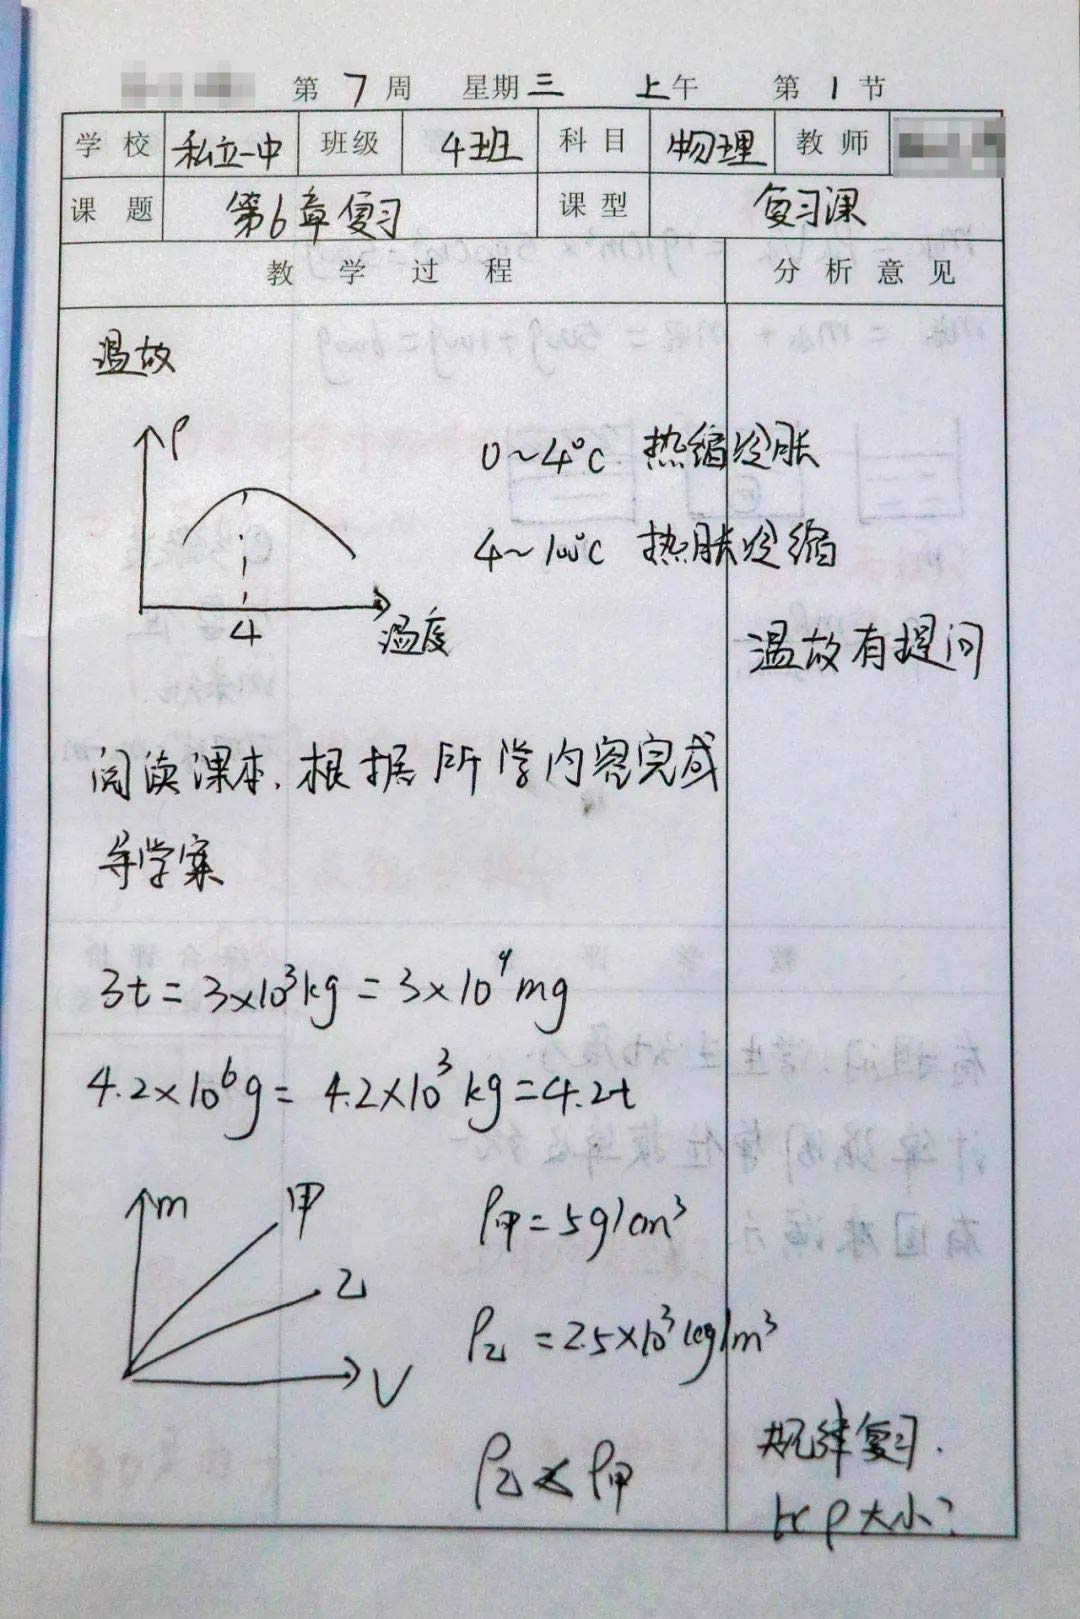 第7周 星期三 上午 第1节
学校 私立一中 班级 4班 科目 物理 教师
课题 第6章复习 课型 复习课
教学过程 分析意见
温故
ρ
0~4°C 热缩冷胀
4~100°C 热胀冷缩
4 温度
温故有提问
阅读课本,根据所学内容完成
导学案
3t=3×10³kg=3×10⁹mg
4.2×10⁶g=4.2×10³kg=4.2t
m 甲
ρ甲=5g/cm³
乙
ρ乙=2.5×10³kg/m³
V
规律复习.
ρ乙<ρ甲
比ρ大小?